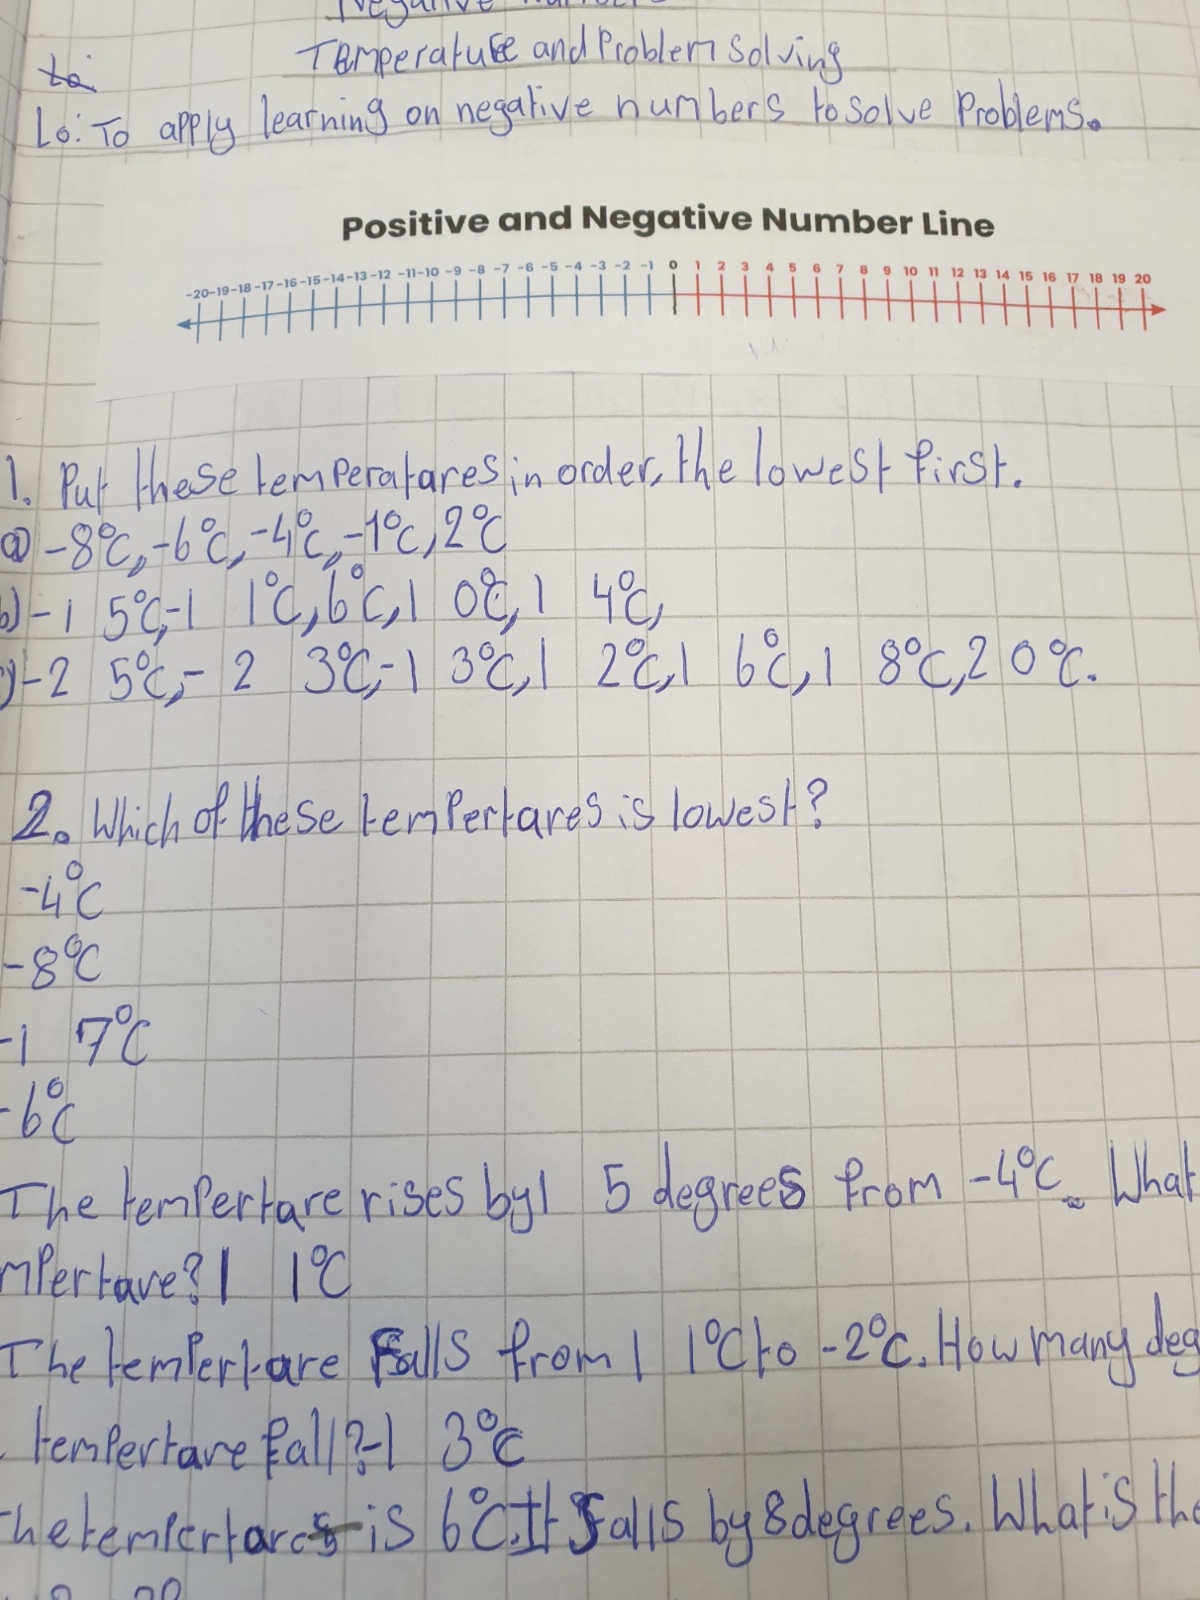 Negative numbers
Temperature and Problem Solving
Lo:
Lo: To apply learning on negative numbers to solve Problems.
Positive and Negative Number Line
-20 -19 -18 -17 -16 -15 -14 -13 -12 -11 -10 -9 -8 -7 -6 -5 -4 -3 -2 -1 0 1 2 3 4 5 6 7 8 9 10 11 12 13 14 15 16 17 18 19 20
1. Put these temperatares in order, the lowest first.
a) -8°C, -6°C, -4°C, -1°C, 2°C
b) -1 5°C, -1 1°C, 6°C, 1 0°C, 1 4°C,
) -2 5°C, -2 3°C, -1 3°C, 1 2°C, 1 6°C, 1 8°C, 2 0°C.
2. Which of these tempertares is lowest?
-4°C
-8°C
-1 7°C
-6°C
The tempertare rises by 1 5 degrees from -4°C. What
mpertare? 1 1°C
The tempertare Falls from 1 1°C to -2°C. How many deg
tempertare fall? -1 3°C
he tempertares is 6°C. It Falls by 8 degrees. What is the